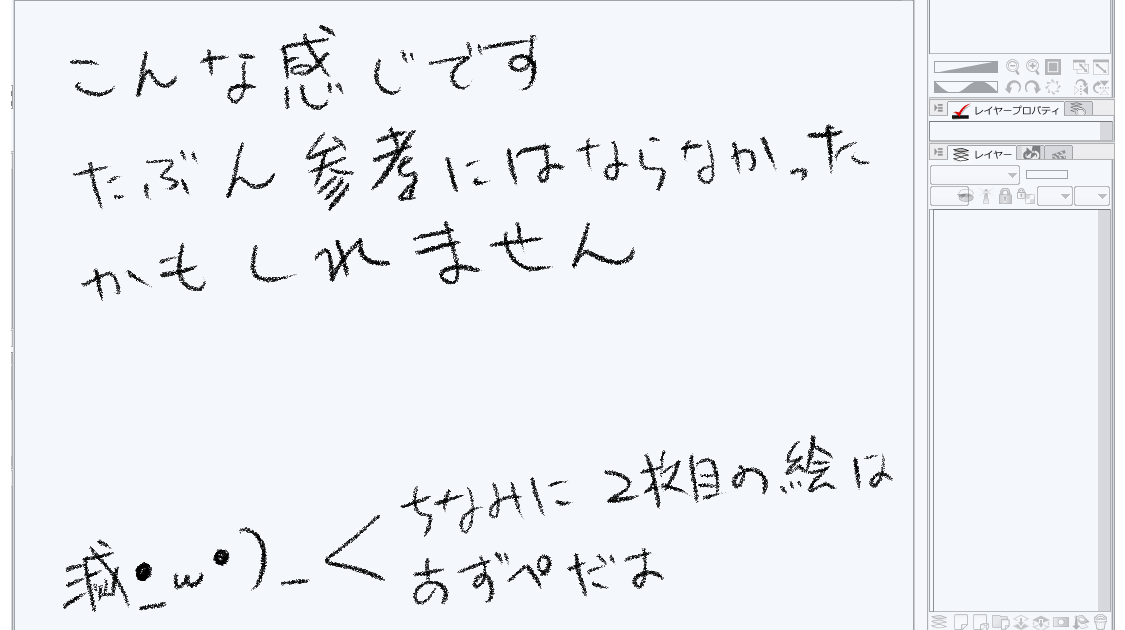 こんな感じです
たぶん参考にはならなかった
かもしれません
ちなみに2枚目の絵は
あずぺだよ
減•_ω•)_<
レイヤープロパティ
レイヤー